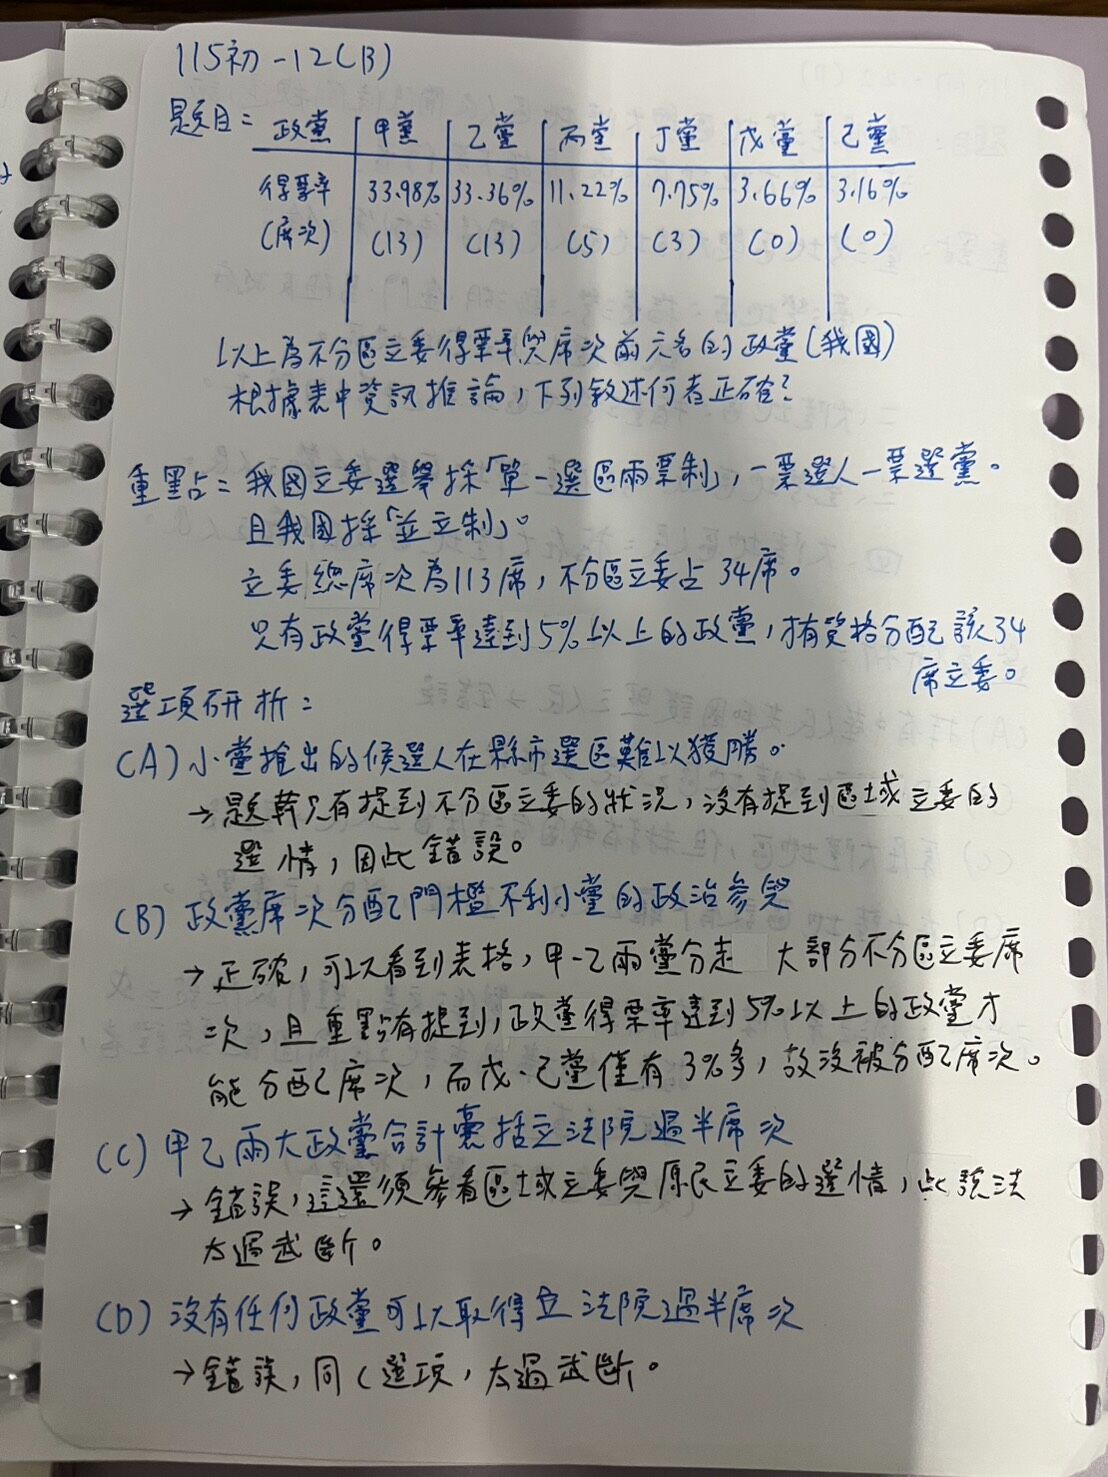 115初-12(B)
題目= 政黨 甲黨 乙黨 丙黨 丁黨 戊黨 己黨
得票率 33.98% 33.36% 11.22% 7.75% 3.66% 3.16%
(席次) (13) (13) (5) (3) (0) (0)
以上為不分區立委得票率與席次前六名的政黨(我國)
根據表中資訊推論,下列敘述何者正確?
重點=我國立委選舉採「單一選區兩票制」,一票選人一票選黨。
且我國採「並立制」。
立委總席次為113席,不分區立委占34席。
只有政黨得票率達到5%以上的政黨,才有資格分配該34
席立委。
選項研析=
(A)小黨推出的候選人在縣市選區難以獲勝。
→題幹只有提到不分區立委的狀況,沒有提到區域立委的
選情,因此錯誤。
(B)政黨席次分配門檻不利小黨的政治參與
→正確,可以看到表格,甲、乙兩黨分走 大部分不分區立委席
次,且重點有提到,政黨得票率達到5%以上的政黨才
能分配席次,而戊、己黨僅有3%多,故沒被分配席次。
(C)甲乙兩大政黨合計囊括立法院過半席次
→錯誤,這還須參看區域立委與原民立委的選情,此說法
太過武斷。
(D)沒有任何政黨可以取得立法院過半席次
→錯誤,同C選項,太過武斷。